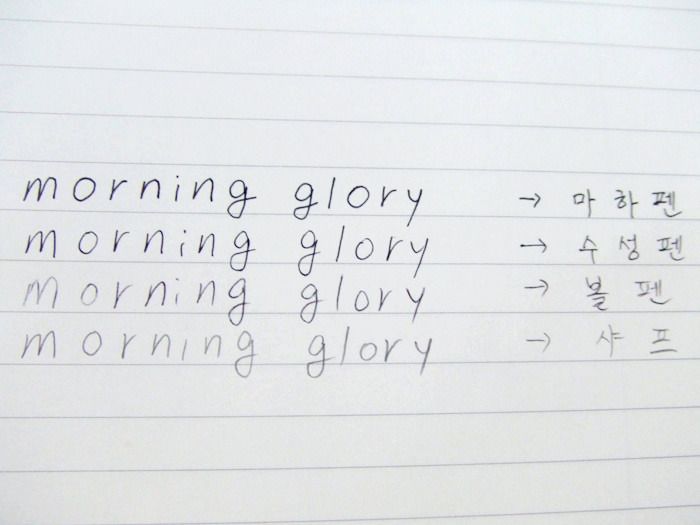 morning glory → 마하펜
morning glory → 수성펜
morning glory → 볼펜
morning glory → 샤프